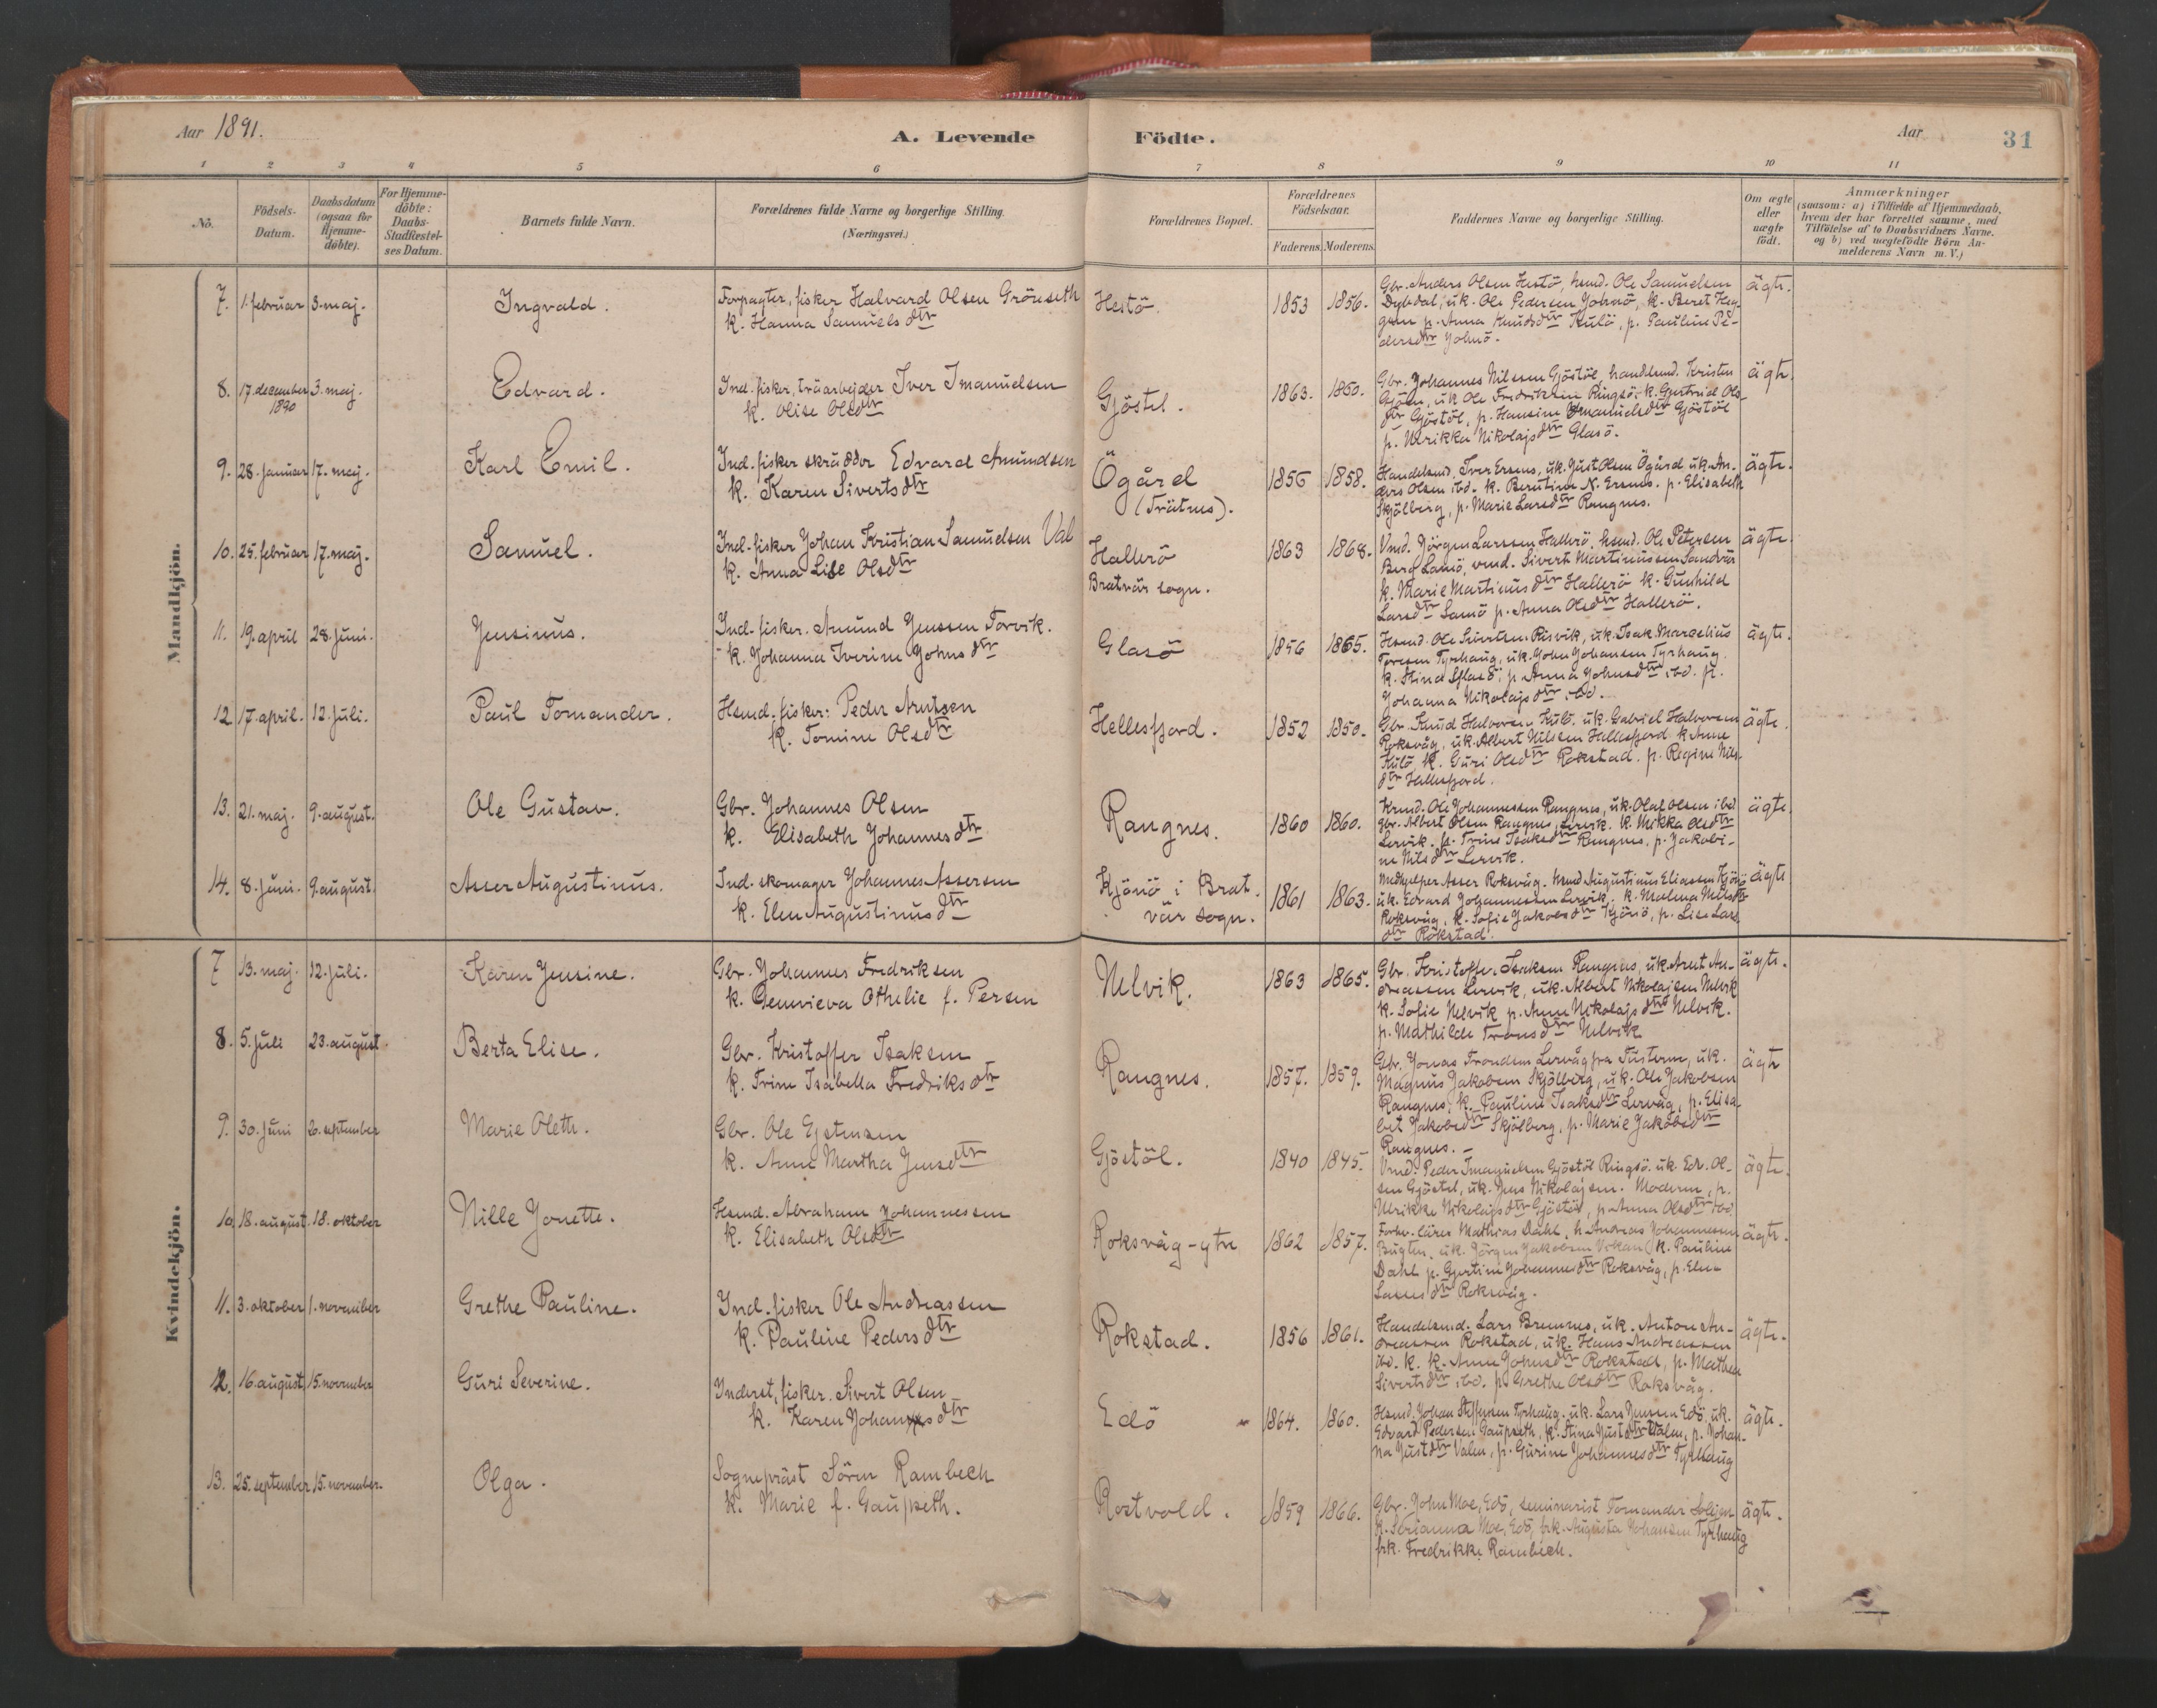 Aar 1891.
A. Levende Födte.
Aar
31
1 2 3 4 5 6 7 8 9 10 11
No.
Födsels-
Datum.
Daabsdatum
(ogsaa for
Hjemme-
döbte).
For Hjemme-
döbte:
Daabs-
Stadfæstel-
ses Datum.
Barnets fulde Navn.
Forældrenes fulde Navne og borgerlige Stilling.
(Næringsvei.)
Forældrenes Bopæl.
Forældrenes
Födselsaar.
Faderens. Moderens.
Faddernes Navne og borgerlige Stilling.
Om ægte
eller
uægte
födt.
Anmærkninger
(saasom: a) i Tilfælde af Hjemmedaab,
hvem der har forrettet samme, med
Tilföielse af to Daabsvidners Navne.
og b) ved uægtefödte Börn An-
melderens Navn m. V.)
Mandkjön.
7. 1. februar 3. maj. Ingvald.
Forpagter, fisker Halvard Olsen Gröuseth
k. Hanna Samuelsdtr
Hestö. 1853 1856.
Gbr. Anders Olsen Hestö, hsmd. Ole Samuelsen
Dybdal, uk. Ole Pedersen Johnö, k. Beret Heg-
gun p. Anna Knudsdtr Kulö, p. Pauline Pe-
dersdtr Johnö.
ägte.
8. 17. december 3. maj. Edvard.
1890
Ind. fisker, träarbejder Iver Imanuelsen
k. Olise Olsdtr
Gjöstöl. 1863. 1860.
Gbr. Johannes Nilssen Gjöstöl, handlsmd. Kristen
Gjöen, uk Ole Fredriksen Ringsö, k. Gjertrud Ols-
dtr Gjöstöl, p. Hansine Imanuelsdtr Gjöstöl
p. Ulrikka Nikolajsdtr Glasö.
ägte.
9. 28. januar 17. maj. Karl Emil.
Ind. fisker skrädder Edvard Amundsen
k. Karen Sivertsdtr
Ögård
(Trätnes).
1856 1858.
Handelsmd. Iver Ersnes, uk. Just Olsen Ögård uk. An-
ders Olsen ibd. k. Berntine N. Ersnes. p. Elisabeth
Skjölberg, p. Marie Larsdtr Rangnes.
ägte.
10. 25. februar 17. maj. Samuel.
Ind. fisker Johan Kristian Samuelsen Val
k. Anna Lise Olsdtr
Hallerö
Bratvär sogn.
1863 1868.
Vmd. Jörgen Larssen Hallerö, hsmd. Ole Petersen
Berg Lamö, vmd. Sivert Martinussen Sandvär
k. Marie Martinusdtr Hallerö k. Gunhild
Larsdtr Lamö p. Anna Olsdtr Hallerö.
ägte.
11. 19. april 28. juni. Jensinus.
Ind. fisker. Amund Jenssen Torvik.
k. Johanna Iverine Johnsdtr
Glasö 1856 1865.
Hsmd. Ole Sivertsen Risvik, uk. Isak Marcelius
Toresen Tyrhaug, uk. John Johansen Tyrhaug.
k. Stina Glasö, p. Anna Johnsdtr ibd. p.
Johanna Nikolajsdtr ibd.
ägte.
12 17. april. 12. juli. Paul Tomander.
Hsmd. fisker: Peder Arntsen
k. Tomine Olsdtr
Hellesfjord. 1852 1850.
Gbr. Knud Halvorsen Kulö. uk. Gabriel Halvorsen
Roksvåg, uk. Albert Nilssen Hellesfjord k. Anne
Kulö, k. Guri Olsdtr Rokstad. p. Regine Nils-
dtr Hellesfjord.
ägte.
13. 21. maj. 9. august. Ole Gustav.
Gbr. Johannes Olsen
k. Elisabeth Johannesdtr
Rangnes. 1860 1860.
Krmd. Ole Johannessen Rangnes, uk. Olaf Olsen ibd
gbr. Albert Olsen Rangnes, Lervik. k. Mikka Olsdtr
Lervik. p. Trine Isaksdtr Rangnes. p. Jakobi-
ne Nilsdtr Lervik.
ägte.
14. 8. juni. 9. august. Asser Augustinus.
Ind. skomager Johannes Assersen
k. Elen Augustinusdtr
Kjönö i Brat-
vär sogn.
1861 1863.
Medhjelper Asser Roksvåg. hsmd Augustinus Eliassen Kjönö
uk. Edvard Johannessen Lervik. k. Malena Nilsdtr
Roksvåg, k. Sofie Jakobsdtr Kjönö, p. Lise Lars-
dtr Rökstad.
ägte
Kvindekjön.
7 13. maj. 12. juli. Karen Jensine.
Gbr. Johannes Fredriksen
k. Genevieva Othelie f. Persen
Nelvik. 1863 1865.
Gbr. Kristoffer Isaksen Rangnes, uk. Arnt An-
dreassen Lervik, uk. Albert Nikolajsen Nelvik
k. Sofie Nelvik p. Anne Nikolajsdtr Nelvik.
p. Mathilde Fransdtr Nelvik
ägte.
8. 5. juli 23. august. Berta Elise.
Gbr. Kristoffer Isaksen
k. Trine Isabella Fredriksdtr
Rangnes. 1857. 1859.
Gbr. Jonas Trondsen Lervåg fra Tusteren, uk.
Magnus Jakobsen Skjölberg, uk. Ole Jakobsen
Rangnes, k. Pauline Isaksdtr Lervåg, p. Elisa-
bet Jakobsdtr Skjölberg, p. Marie Jakobsdtr
Rangnes.
ägte
9. 30. juni 20. september Marie Oleth.
Gbr. Ole Ejstensen
k. Anne Martha Jensdtr
Gjöstöl. 1840 1845.
Vmd. Peder Imanuelsen Gjöstöl Ringsö. uk. Edv. Ol-
sen Gjöstöl, uk. Jens Nikolajsen. Moderen, p.
Ulrikke Nikolajsdtr Gjöstöl, p. Anna Olsdtr ibd
ägte.
10. 18. august. 18. oktober Nille Jonette.
Hsmd. Abraham Johannessen
k. Elisabeth Olsdtr
Roksvåg-ytre 1862 1857.
Forhv. lärer Mathias Dahl, h. Andreas Johannessen
Bugten, uk. Jörgen Jakobsen Vikan k. Pauline
Dahl p. Gjertine Johannesdtr Roksvåg, p. Elen
Larsdtr Roksvåg.
ägte.
11. 3. oktober 1. november Grethe Pauline.
Ind. fisker Ole Andreassen
k. Pauline Pedersdtr
Rokstad. 1856 1861.
Handelsmd. Lars Bremnes, uk. Anton An-
dreassen Rokstad, uk. Hans Andreassen
ibd. k. k. Anne Johnsdtr Rokstad, p. Mathea
Sivertsdtr ibd. p. Grethe Olsdtr Roksvåg.
ägte.
12. 16. august 15. november Guri Severine.
Inderst, fisker. Sivert Olsen
k. Karen Johannesdtr
Edö 1864. 1860.
Hsmd. Johan Steffensen Tyrhaug. uk. Lars Jensen Edö, uk.
Edvard Pedersen Gaupseth, k. Stina Justdtr Valen, p. Johan-
na Justdtr Valen, p. Gurine Johannesdtr Tyrhaug
ägte.
13. 25. september 15. november. Olga.
Sognepräst Sören Rambech
k. Marie f. Gaupseth.
Rostvold. 1859 1866.
Gbr. John Moe, Edö, seminarist Tomander Solejen
k. Serianna Moe, Edö, frk. Augusta Johansen Tyrhaug
frk. Fredrikke Rambech.
ägte.